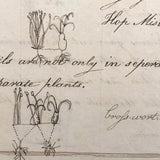 Hop Mis
are not only in separ
parate plants.
Crosswort